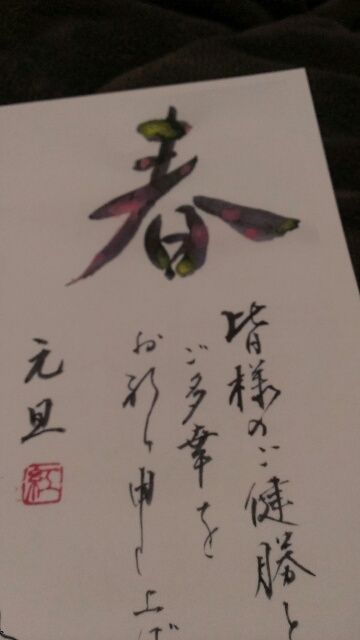 春
皆様のご健勝と
ご多幸を
お祈り申し上げ
元旦
紅